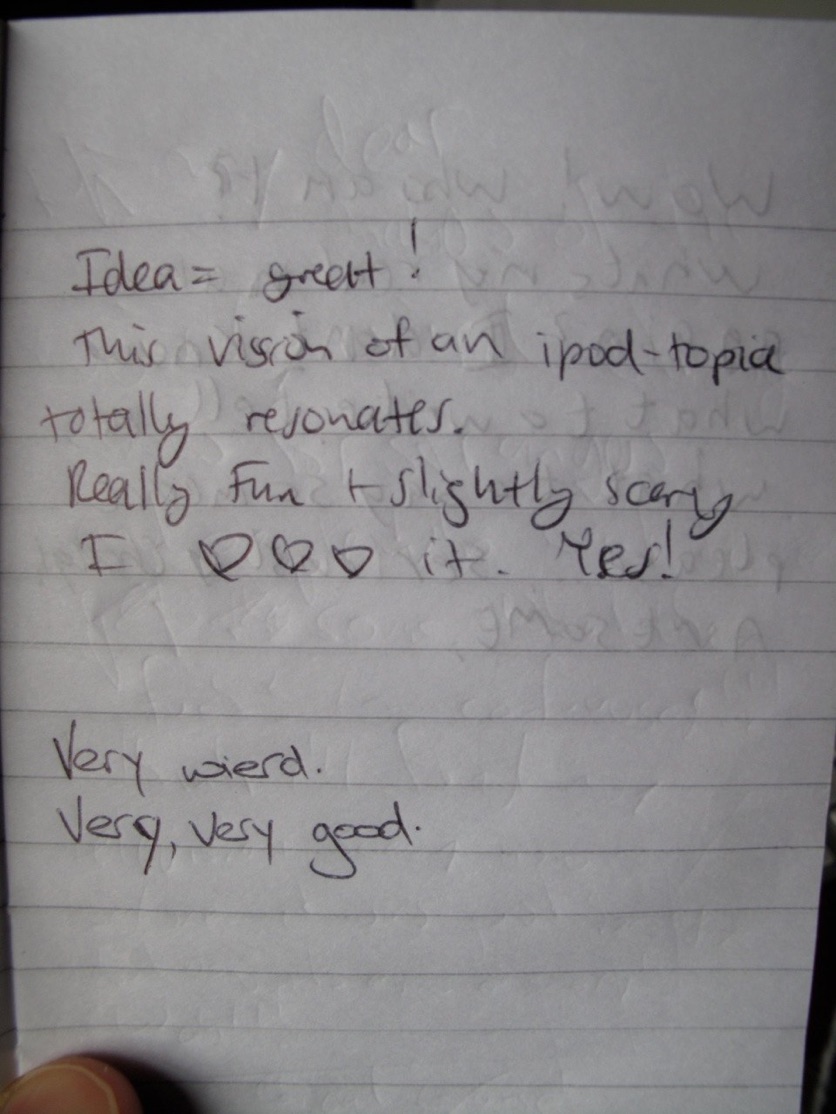 Idea = great!
This vision of an ipod-topia
totally resonates.
Really fun + slightly scary
I ♡♡♡ it. Yes!
Very wierd.
Very, very good.